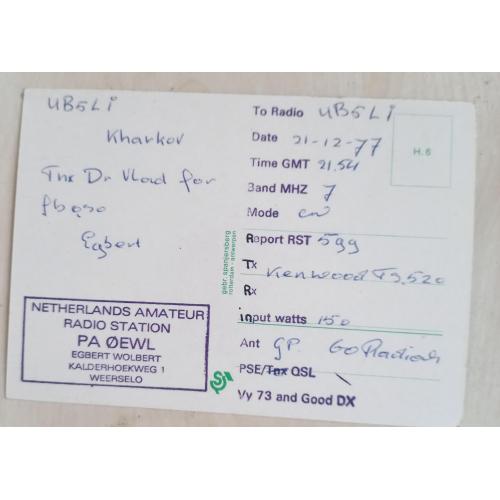 UB5LI
Kharkov
Tnx Dr Vlad for
fb qso
Egbert
NETHERLANDS AMATEUR
RADIO STATION
PA ØEWL
EGBERT WOLBERT
KALDERHOEKWEG 1
WEERSELO
gebr. spanjersberg
rotterdam - antwerpen
To Radio UB5LI
Date 21-12-77
Time GMT 21.54
Band MHZ 7
Mode cw
Raport RST 599
Tx Kenwood TS 520
Rx
input watts 150
Ant GP. 60 Radials
PSE/Tnx QSL \
Vy 73 and Good DX
H.6